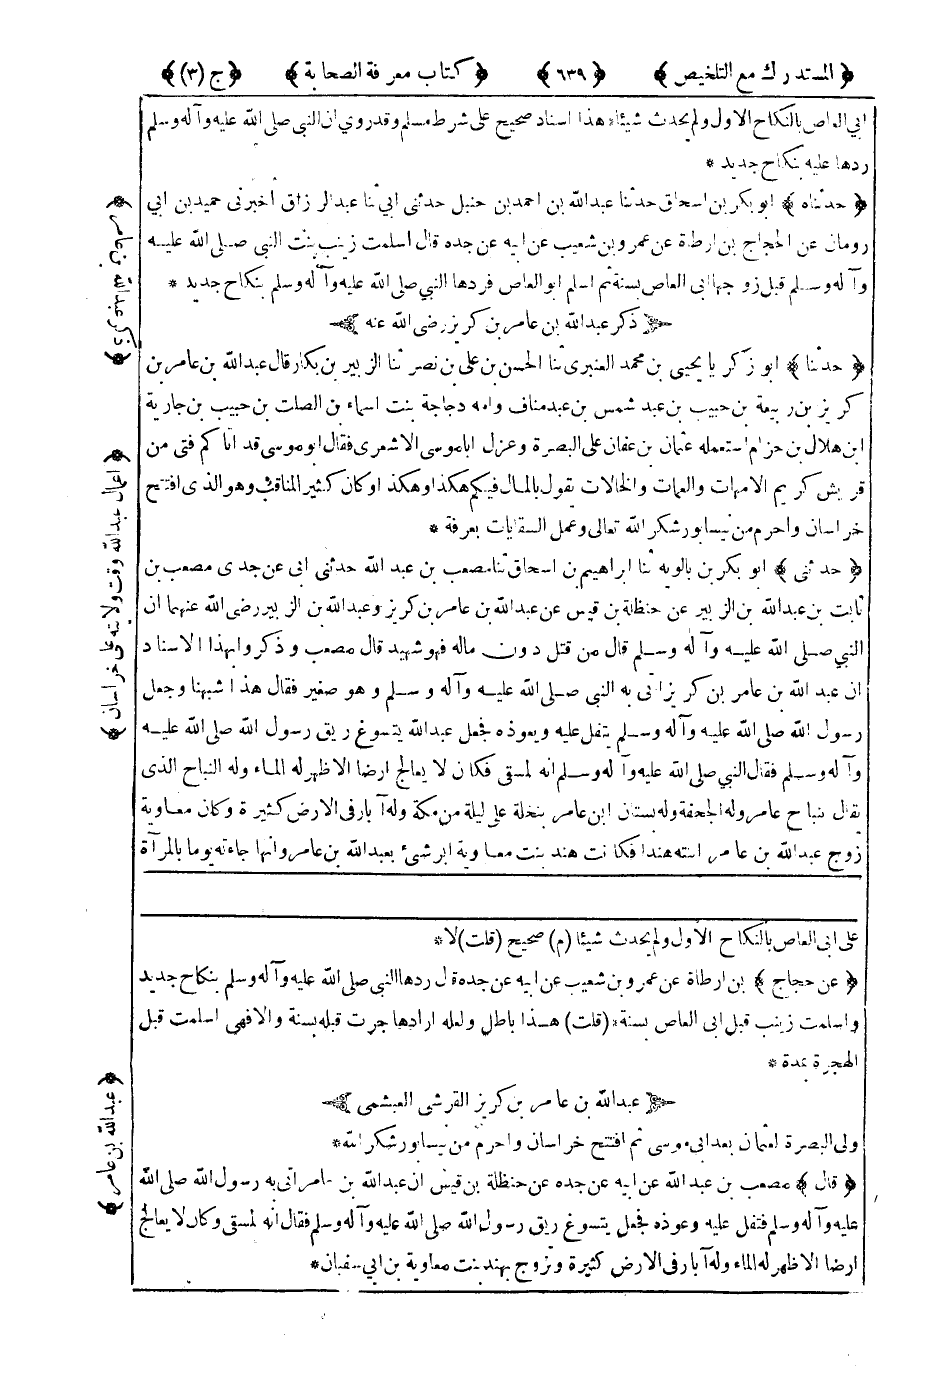 ﴿ المستدرك مع التلخيص ﴾ ﴿ ٦٣٩ ﴾ ﴿ كتاب معرفة الصحابة ﴾ ﴿ ج (٣) ﴾
ابي العاص بالنكاح الاول ولم يحدث شيئا* هذا اسناد صحيح على شرط مسلم وقدروي ان النبي صلى الله عليه وآله وسلم
ردها عليه بنكاح جديد *
﴿ حدثناه ﴾ ابو بكر بن اسحاق حدثنا عبدالله بن احمد بن حنبل حدثنى ابي ثنا عبدالرزاق أخبرنى حميد بن ابي
رومان عن الحجاج بن ارطاة عن عمرو بن شعيب عن ابيه عن جده قال اسلمت زينب بنت النبي صلى الله عليه
وآله وسلم قبل زوجها ابى العاص بسنة ثم اسلم ابو العاص فردها النبي صلى الله عليه وآله وسلم بنكاح جديد *
ذكر عبدالله بن عامر بن كريز رضى الله عنه
﴿ حدثنا ﴾ ابو زكريا يحيى بن محمد العنبرى ثنا الحسن بن على بن نصر ثنا الزبير بن بكار قال عبدالله بن عامر بن
كريز بن ربيعة بن حبيب بن عبد شمس بن عبد مناف وامه دجاجة بنت اسماء بن الصلت بن حبيب بن جارية
ابن هلال بن حزام استعمله عثمان بن عفان على البصرة وعزل اباموسى الاشعرى فقال ابو موسى قد اتاكم فتى من
قريش كريم الامهات والعمات والخالات يقول بالمال فيكم هكذا وهكذا وكان كثير المناقب وهو الذى افتتح
خراسان واحرم من نيسابور شكر الله تعالى وعمل السقايات بعرفة *
﴿ حدثنى ﴾ ابو بكر بن بالويه ثنا ابراهيم بن اسحاق ثنا مصعب بن عبد الله حدثنى ابى عن جدى مصعب بن
ثابت بن عبدالله بن الزبير عن حنظلة بن قيس عن عبدالله بن عامر بن كريز وعبدالله بن الزبير رضى الله عنهما ان
النبي صلى الله عليه وآله وسلم قال من قتل دون ماله فهو شهيد قال مصعب وذكروا بهذا الاسناد
ان عبد الله بن عامر بن كريز اتى به النبي صلى الله عليه وآله وسلم وهو صغير فقال هذا شبهنا وجعل
رسول الله صلى الله عليه وآله وسلم يتفل عليه ويعوذه فجعل عبدالله يتسوغ ريق رسول الله صلى الله عليه
وآله وسلم فقال النبي صلى الله عليه وآله وسلم انه لمسقى فكان لا يعالج ارضا الا ظهر له الماء وله النباح الذى
يقال نباح عامر وله الجحفة وله بستان ابن عامر بنخلة على ليلة من مكة وله آبار فى الارض كثيرة وكان معاوية
زوج عبدالله بن عامر ابنته هندا فكانت هند بنت معاوية ابر شئ بعبدالله بن عامر وانها جاءته يوما بالمرآة
على ابى العاص بالنكاح الاول ولم يحدث شيئا (م) صحيح (قلت) لا*
﴿ عن حجاج ﴾ بن ارطاة عن عمرو بن شعيب عن ابيه عن جده قال ردها النبي صلى الله عليه وآله وسلم بنكاح جديد
واسلمت زينب قبل ابى العاص بسنة* (قلت) هذا باطل ولعله اراد هاجرت قبله بسنة والا فهى اسلمت قبل
الهجرة بمدة *
عبدالله بن عامر بن كريز القرشى العبشمى
ولى البصرة لعثمان بعد ابى موسى ثم افتتح خراسان واحرم من نيسابور شكر الله*
﴿ قال ﴾ مصعب بن عبد الله عن ابيه عن جده عن حنظلة بن قيس ان عبدالله بن عامر اتى به رسول الله صلى الله
عليه وآله وسلم فتفل عليه وعوذه فجعل يتسوغ ريق رسول الله صلى الله عليه وآله وسلم فقال انه لمسقى وكان لا يعالج
ارضا الا ظهر له الماء وله آبار فى الارض كثيرة وتزوج بهند بنت معاوية بن ابي سفيان*
﴿ ذكر عبدالله بن عامر ﴾
﴿ اعمال عبدالله وقت ولايته على خراسان ﴾
﴿ عبدالله بن عامر ﴾